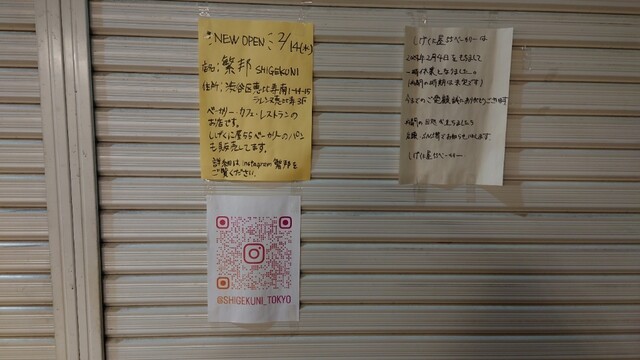 NEW OPEN 2/14(水)
店名:繁邦 SHIGEKUNI
住所:渋谷区恵比寿南1-14-15
ラ・レンヌ恵比寿3F
ベーカリー・カフェ・レストランの
お店です。
しげくに屋55ベーカリーのパン
も販売してます。
詳細は、instagram 繁邦を
ご覧ください。
@SHIGEKUNI_TOKYO
しげくに屋55ベーカリーは
2月4日をもちまして
一時休業となりました。
再開の時期は未定です!
今までのご愛顧誠にありがとうございます
再開の
SNS等でお知らせいたします
しげくに屋55ベーカリー